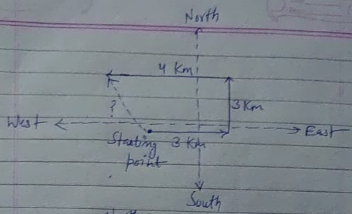 North
4 Km
3 Km
?
West
East
Starting 3 Km
point
South